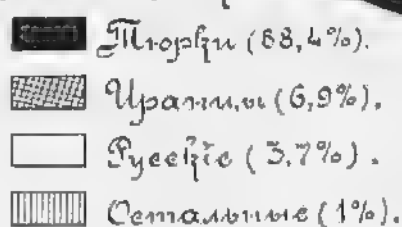 Тюрки (88,4%).
Иранцы (6,9%).
Русскіе (3,7%).
Остальные (1%).